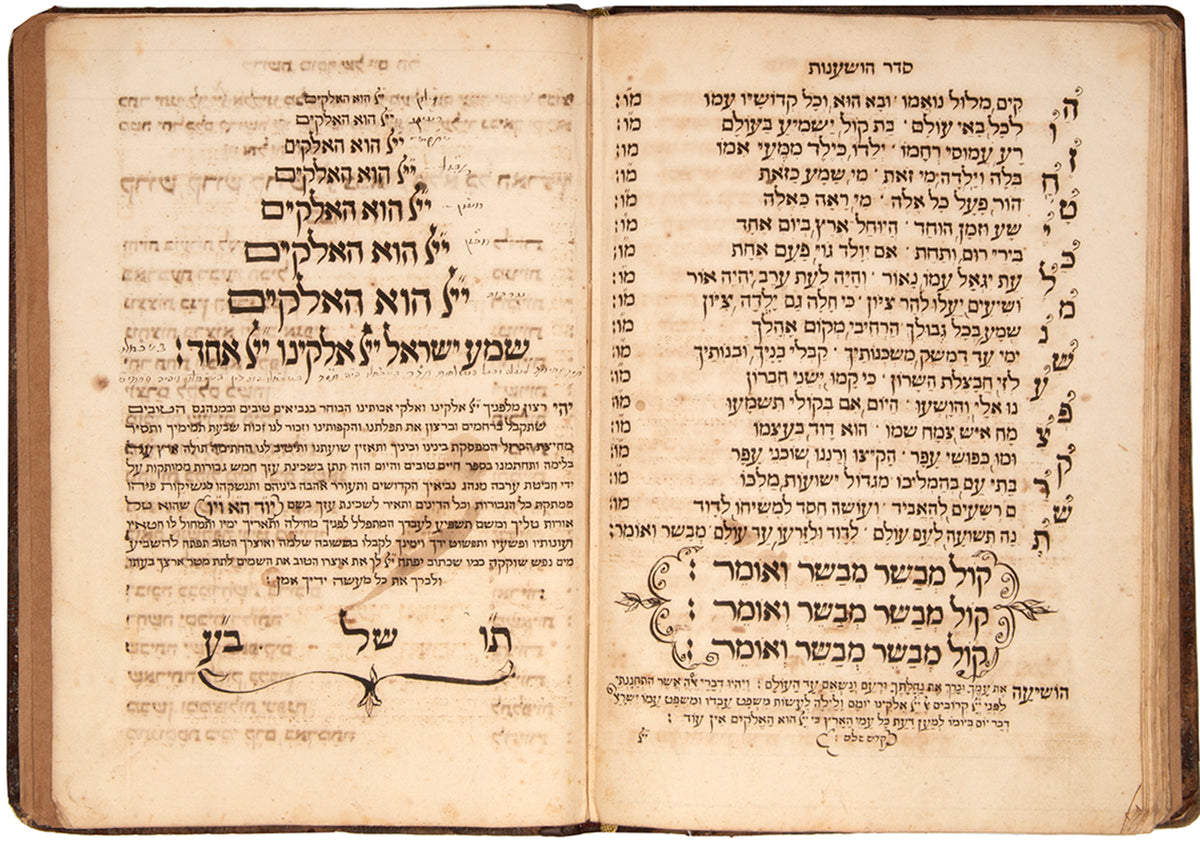 סדר הושענות
הקים מלול נואמו · ובא הוא וכל קדושיו עמו מו:
ולכל באי עולם · בת קול ישמיע בעולם מו:
זרע עמוסי רחמו · ילדו כילד ממעי אמו מו:
חלה וילדה מי זאת · מי שמע כזאת מו:
טהור פעל כל אלה · מי ראה כאלה מו:
ישע וזמן הוחד · היוחל ארץ ביום אחד מו:
כבירי רום ותחת · אם יולד גוי פעם אחת מו:
לעת יגאל עמו נאור · והיה לעת ערב יהיה אור מו:
מושיעים יעלו להר ציון · כי חלה גם ילדה ציון מו:
נשמע בכל גבולך · הרחיבי מקום אהלך מו:
שימי עד דמשק משכנותיך · קבלי בניך ובנותיך מו:
עלזי חבצלת השרון · כי קמו ישני חברון מו:
פנו אלי והושעו · היום אם בקולי תשמעו מו:
צמח איש צמח שמו · הוא דוד בעצמו מו:
קומו כפושי עפר · הקיצו ורננו שוכני עפר מו:
רבתי עם בהמליכו · מגדול ישועות מלכו מו:
שם רשעים להאביד · ועושה חסד למשיחו לדוד מו:
תנה תשועה לעם עולם · לדוד ולזרעו עד עולם מבשר ואומר:
קול מבשר מבשר ואומר :
קול מבשר מבשר ואומר :
קול מבשר מבשר ואומר :
הושיעה את עמך וברך את נחלתך ורעם ונשאם עד העולם : ויהיו דברי אלה אשר התחננתי
לפני ייל קרובים אל ייל אלקינו יומם ולילה לעשות משפט עבדו ומשפט עמו ישראל
דבר יום ביומו למען דעת כל עמי הארץ כי ייל הוא האלקים אין עוד :
קדיש שלם :
ייל
ייל הוא האלקים
ייל הוא האלקים
ייל הוא האלקים
ייל הוא האלקים
ייל הוא האלקים
ייל הוא האלקים
ייל הוא האלקים
שמע ישראל ייל אלקינו ייל אחד :
יהי רצון מלפניך ייל אלקינו ואלקי אבותינו הבוחר בנביאים טובים ובמנהגם הטובים
שתקבל ברחמים וברצון את תפלתנו והקפותינו וזכור לנו זכות שבעת תמימיך ותסיר
מחיצת הברזל המפסקת בינינו וביניך ותאזין שועתנו ותיטיב לנו החתימה תולה ארץ על
בלימה ותחתמנו בספר חיים טובים והיום הזה תתן בשכינת עזך חמש גבורות ממותקות על
ידי חביטת ערבה מנהג נביאיך הקדושים ותעורר אהבה ביניהם ותנשקהו מנשיקות פיהו
ממתקת כל הגבורות וכל הדינים ותאיר לשכינת עזך בשם (יוד הא ויו) שהוא טל
אורות טליך ומשם תשפיע לעבדך המתפלל לפניך מחילה ותאריך ימיו ותמחול לו חטאיו
ועונותיו ופשעיו ותפשוט ידך וימינך לקבלו בתשובה שלמה ואוצרך הטוב תפתח להשביע
מים נפש שוקקה כמו שכתוב יפתח ייל לך את אוצרו הטוב את השמים לתת מטר ארצך בעתו
ולברך את כל מעשה ידיך אמן :
תו של בע